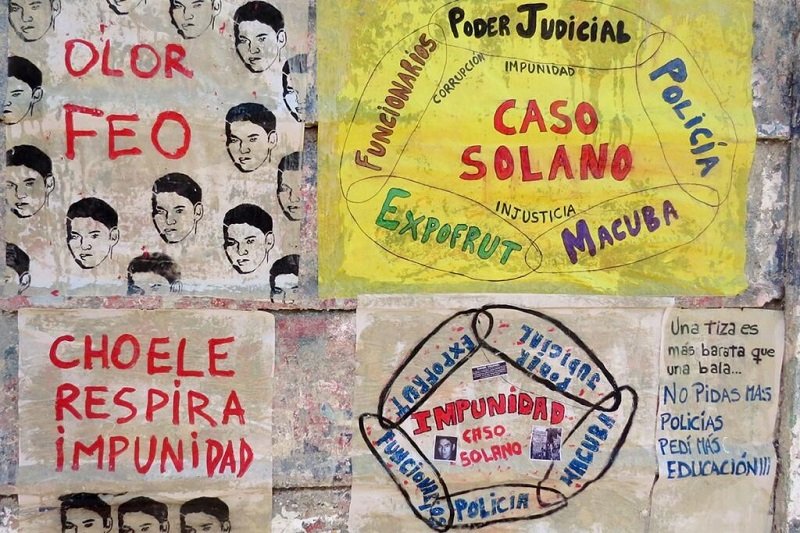 OLOR
FEO
PODER JUDICIAL
FUNCIONARIOS
CORRUPCIÓN
IMPUNIDAD
POLICÍA
CASO
SOLANO
INJUSTICIA
EXPOFRUT
MACUBA
CHOELE
RESPIRA
iMPUNiDAD
EXPOFRUT
PODER
JUDICIAL
IMPUNIDAD
CASO
SOLANO
MACUBA
FUNCIONARIOS
POLICIA
Una tiza es
más barata que
una bala...
NO PIDAS MAS
POLICÍAS
PEDÍ MÁS
EDUCACIÓN!!!